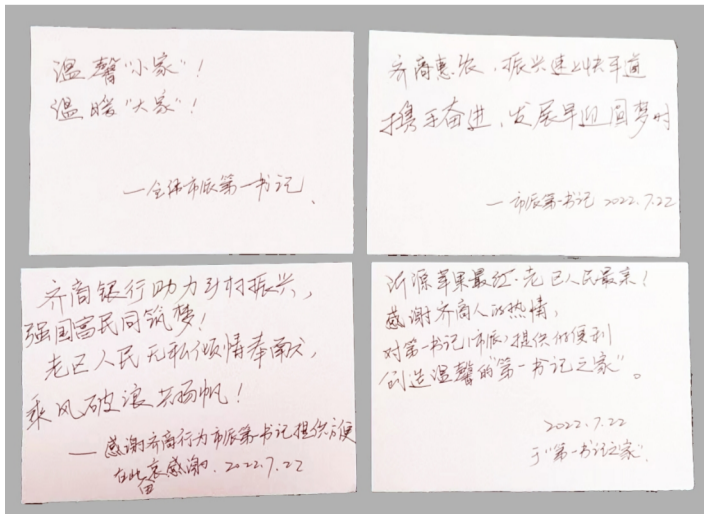 温馨“小家”！
温暖“大家”！
—全体市派第一书记
齐商惠农，振兴速上快车道
携手奋进，发展早迎圆梦时
—市派第一书记 2022.7.22
齐商银行助力乡村振兴，
强国富民同筑梦！
老区人民无私倾情奉献，
乘风破浪共扬帆！
—感谢齐商行为市派第一书记提供方便
在此衷感谢. 2022.7.22
留
沂源苹果最红·老区人民最亲！
感谢齐商人的热情，
对第一书记(市派)提供的便利
创造温馨的“第一书记之家”。
2022.7.22
于“第一书记之家”.